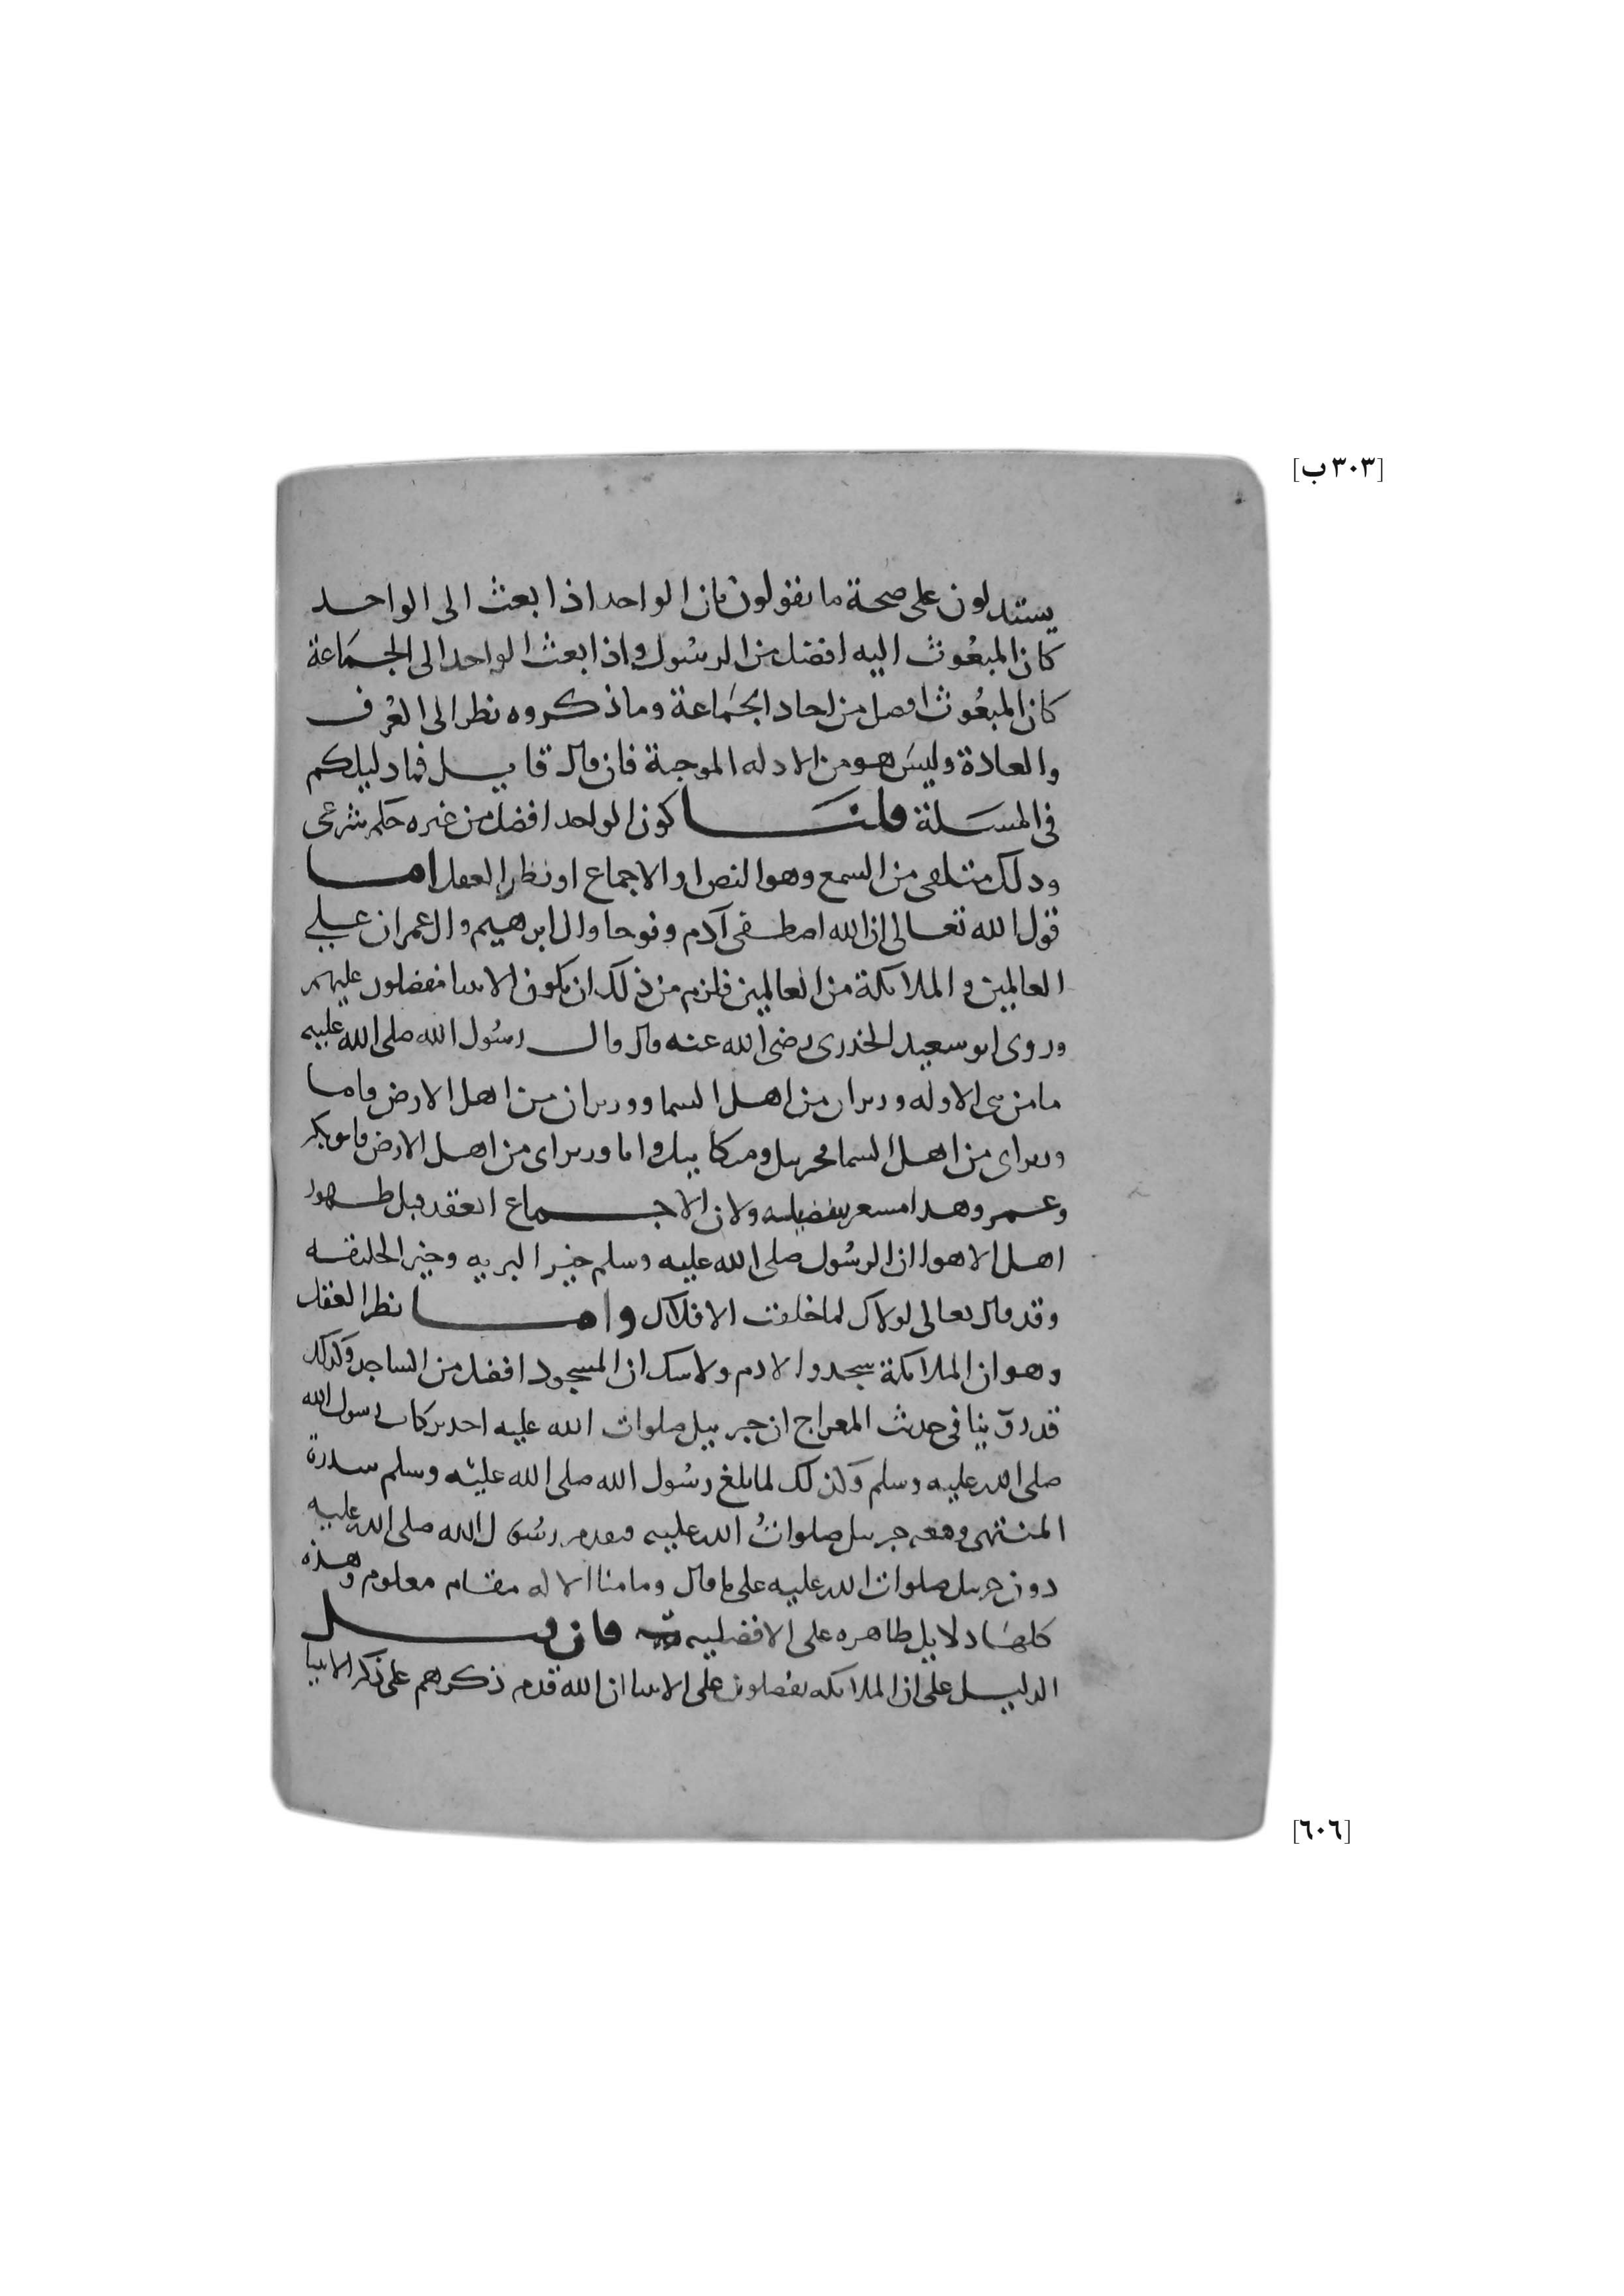 [٣٠٣ ب]
يستدلون على صحة ما يقولون بان الواحد اذا بعث الى الواحد
كان المبعوث اليه افضل من الرسول واذا بعث الواحد الى الجماعة
كان المبعوث افضل من احاد الجماعة وما ذكروه نظر الى العرف
والعادة وليس هو من الادله الموجبة فان قال قايل فما دليلكم
فى المسئلة قلنا كون الواحد افضل من غيره حكم شرعى
وذلك متلقى من السمع وهو النص او الاجماع او نظر العقل اما
قول الله تعالى ان الله اصطفى آدم ونوحا وال ابرهيم وال عمران على
العالمين والملائكة من العالمين فلزم من ذلك ان يكون الانبيا مفضلون عليهم
وروى ابو سعيد الخدرى رضى الله عنه قال قال رسول الله صلى الله عليه
ما من نبى الا وله وزيران من اهل السما ووزيران من اهل الارض فاما
وزيراى من اهل السما فجبريل وميكاييل واما وزيراى من اهل الارض فابو بكر
وعمر وهذا مشعر بتفضيله ولان الاجماع انعقد قبل ظهور
اهل الاهوا ان الرسول صلى الله عليه وسلم خير البريه وخير الخليقه
وقد قال تعالى لولاك لما خلقت الافلاك واما نظر العقل
وهو ان الملائكة سجدوا لادم ولا شك ان المسجود افضل من الساجد وكذلك
قد روينا فى حديث المعراج ان جبرييل صلوات الله عليه احد بركاب رسول الله
صلى الله عليه وسلم وكذلك لما بلغ رسول الله صلى الله عليه وسلم سدرة
المنتهى ومعه جبريل صلوات الله عليه فتقدم رسول الله صلى الله عليه
دون جبريل صلوات الله عليه على ما قال وما منا الا له مقام معلوم وهذه
كلها دلايل ظاهره على الافضليه فان قيل
الدليل على ان الملائكه يفضلون على الانبيا ان الله قدم ذكرهم على ذكر الانبيا
[٦٠٦]